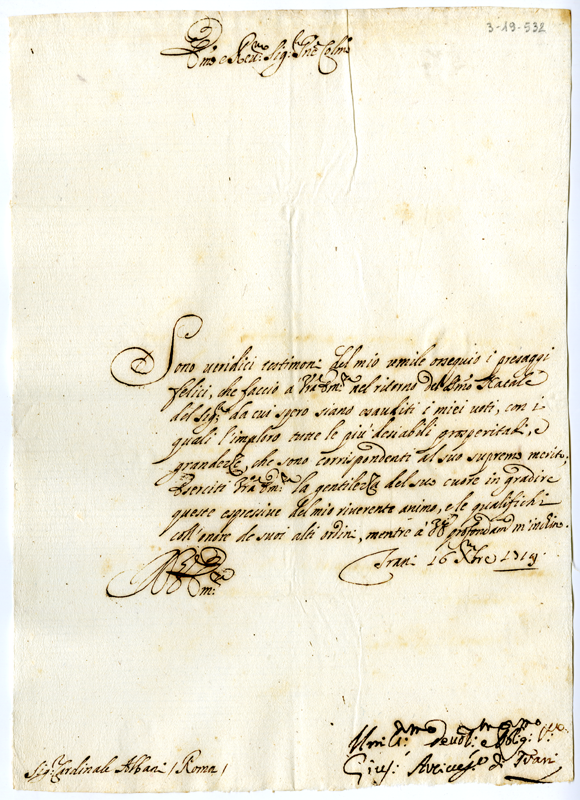 3-19-532
Em̃o e Rev.mo Sig.r Pñe Colmo
Sono veridici testimonj del mio umile ossequio i presaggi
felici, che faccio a Vra Em.za nel ritorno del Smo Natale
del Sig.re da cui spero siano esauditi i miei voti, con i
quali l'imploro tutte le più desiabili prosperità, e
grandezze, che sono corrispondenti al suo supremo merito,
Eserciti Vra Em.za la gentilezza del suo cuore in gradire
queste espressive del mio riverente animo, e le qualifichi
coll'onore de suoi alti ordini, mentre à profondam m'inchino.
Trani 16 Xbre 1719
V. Em.za
Umiliss.mo Devot.mo e Obblig.mo
Gius: Arcives.o di Trani
Sig.r Cardinale Albani / Roma /